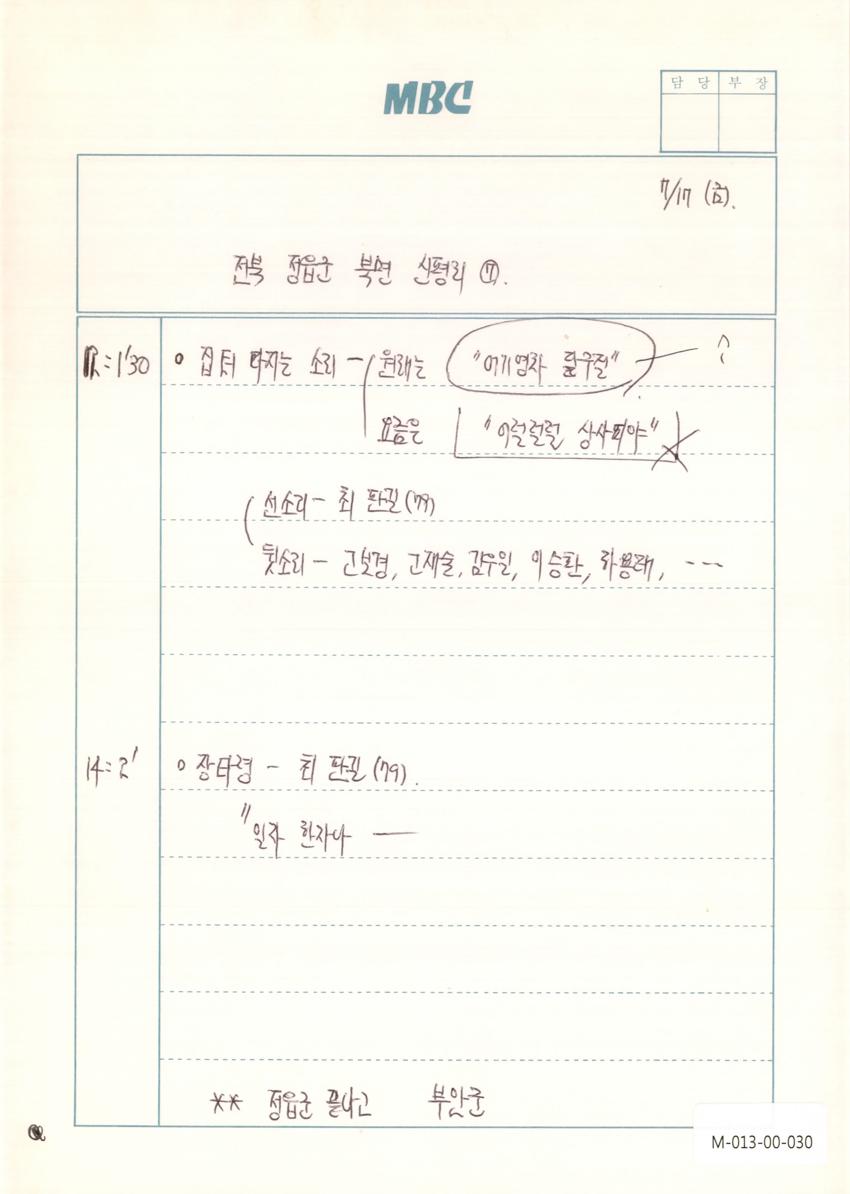 MBC
담 당 부 장
7/17 (금).
전북 정읍군 북면 신평리 ⑦.
12=1'30 ○ 집터 다지는 소리 - 원래는 "어기영차 달구질" ?
요즘은 "이럴럴럴 상사뒤야"
선소리 - 최 판길 (79)
뒷소리 - 고보경, 고재술, 김우일, 이승환, 하용래, ---
14=2' ○ 장타령 - 최 판길 (79).
"일자 한자나 —
** 정읍군 끝나고 부안군
M-013-00-030